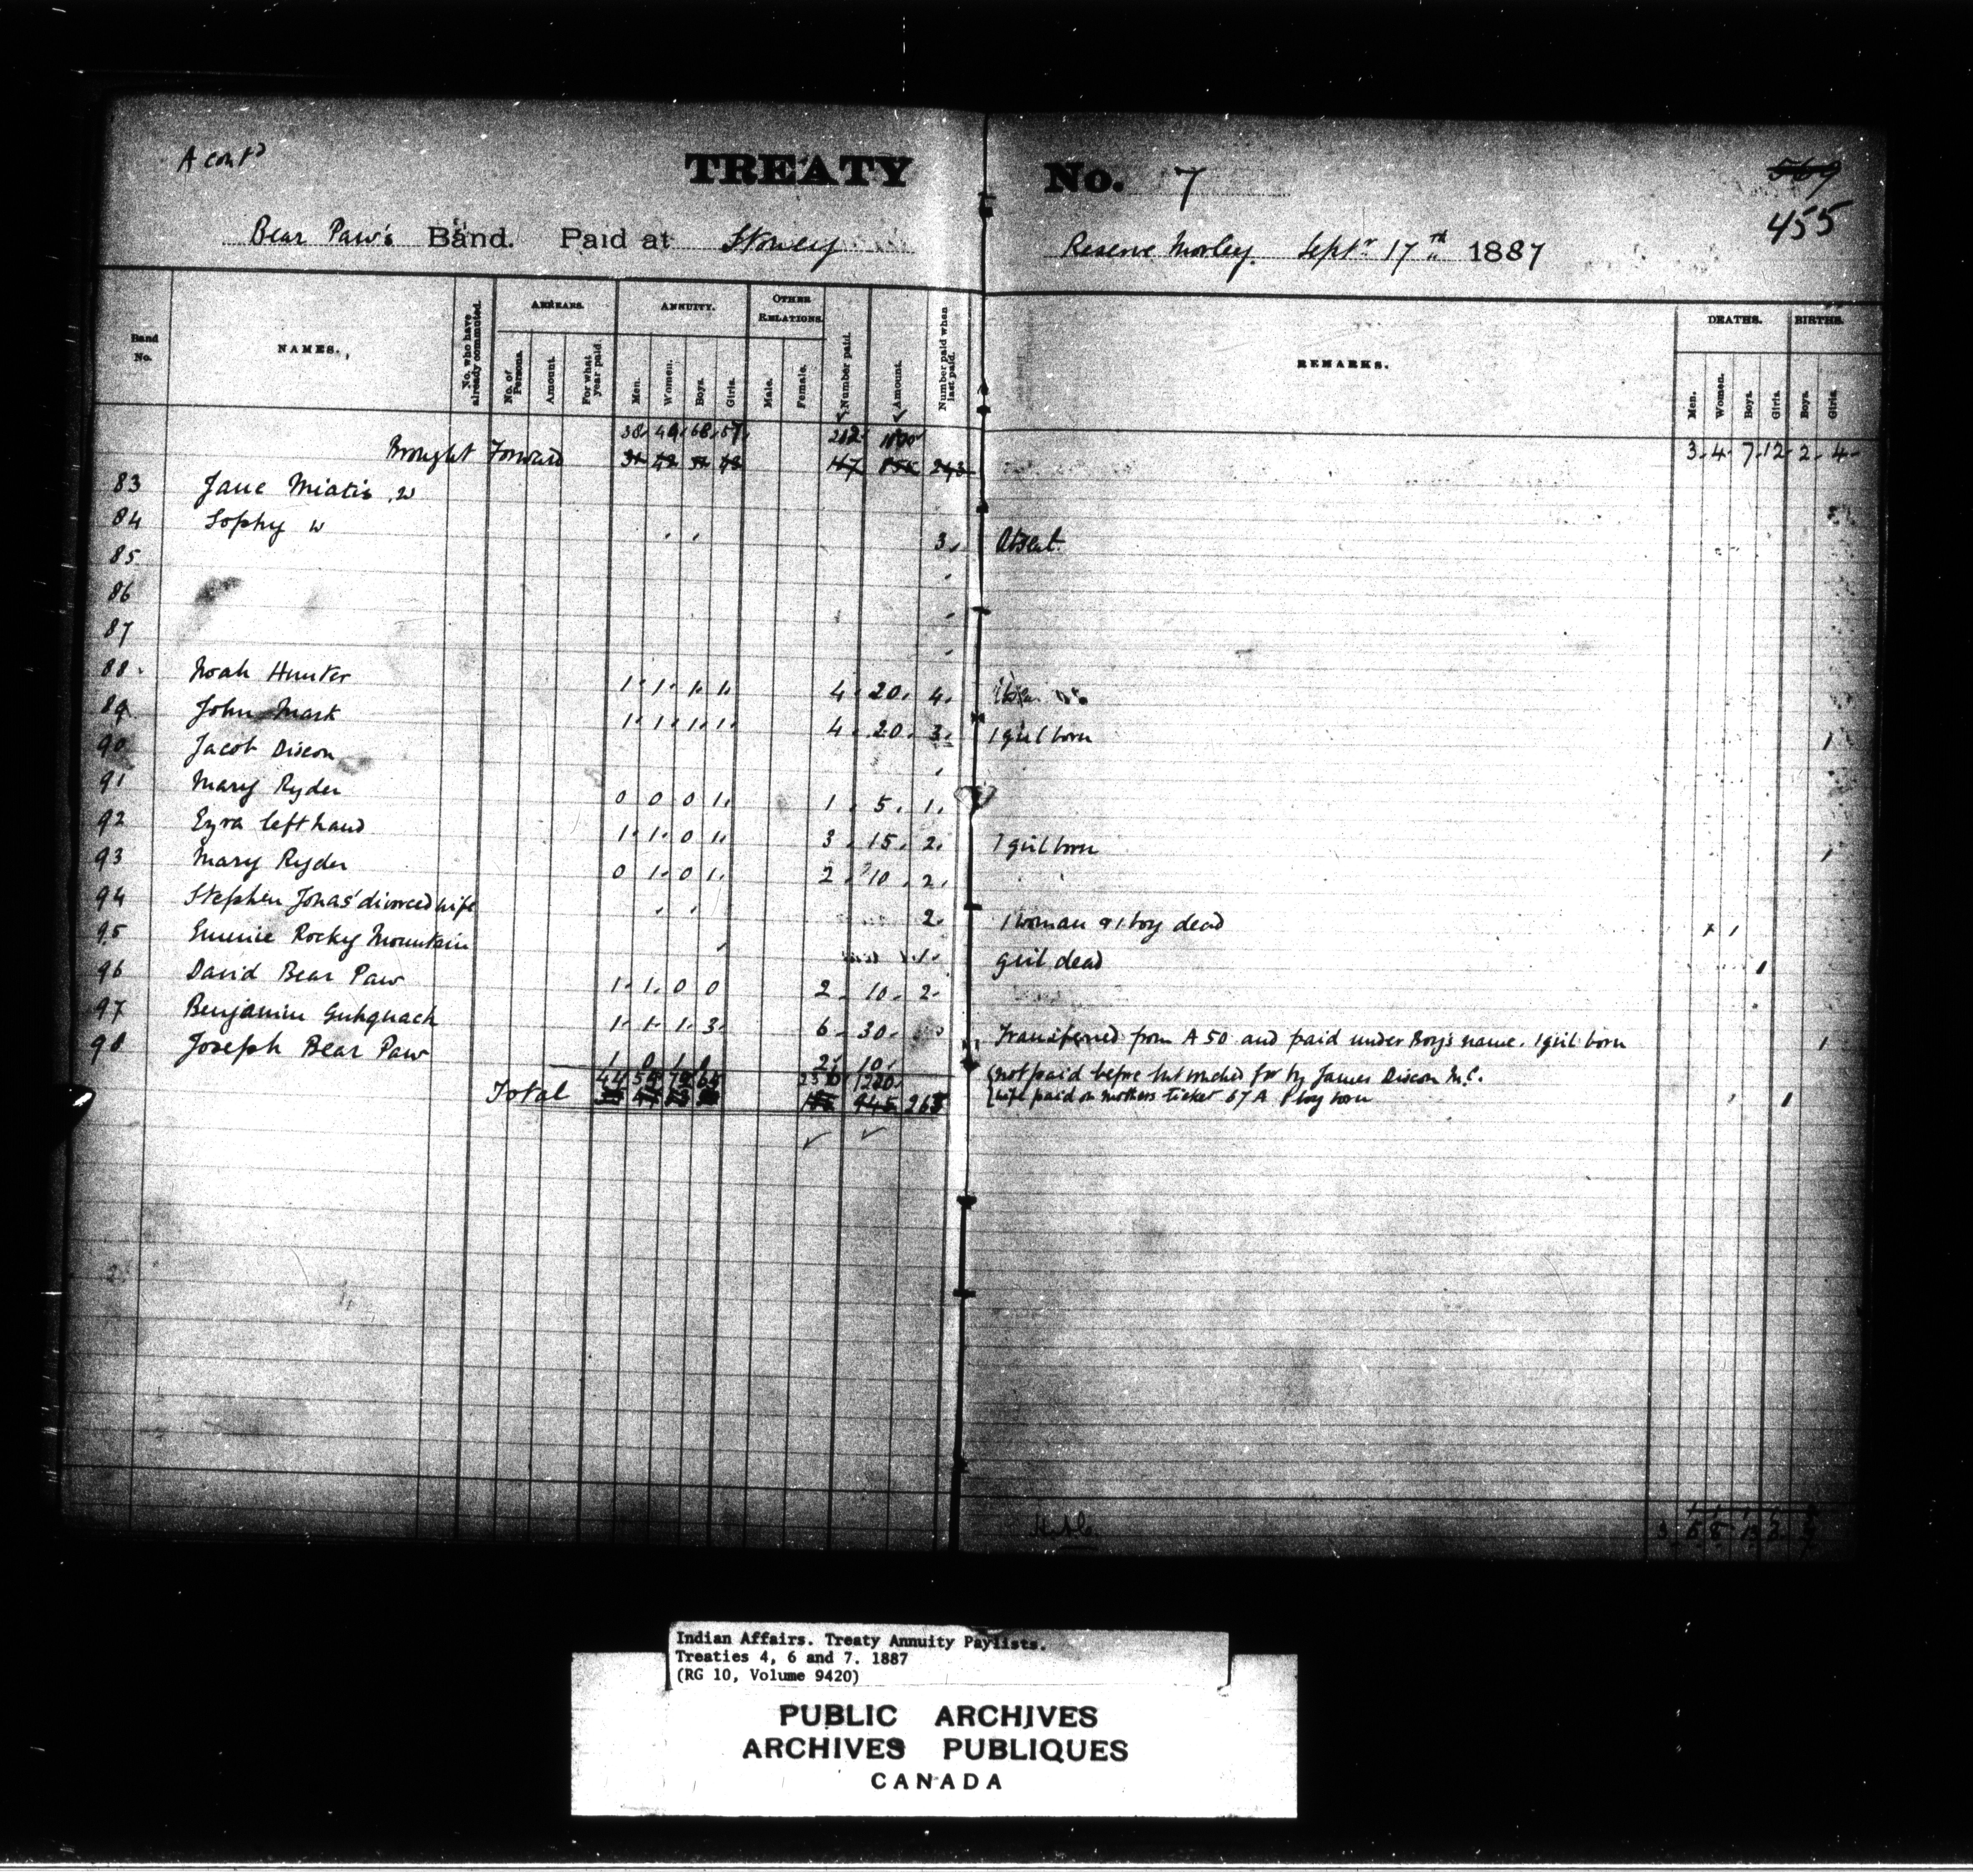 A cont'd
TREATY No. 7
569
455
Bear Paw's Band. Paid at Stoney Reserve Morley. Septr 17th 1887
Band No.
NAMES.
No. who have already commuted.
ARREARS.
No. of Persons.
Amount.
For what year paid.
ANNUITY.
Men.
Women.
Boys.
Girls.
OTHER RELATIONS.
Male.
Female.
Number paid.
Amount.
Number paid when last paid.
REMARKS.
DEATHS.
Men.
Women.
Boys.
Girls.
BIRTHS.
Boys.
Girls.
38. 49. 68. 57. 212
Brought Forward 243 3. 4. 7. 12. 2. 4.
83 Jane Miatis w
84 Sophy w 3. Absent.
85
86
87
88 Noah Hunter 1. 1. 1. 1. 4. 20. 4.
89 John Mark 1. 1. 1. 1. 4. 20. 3. 1 girl born 1
90 Jacob Dixon
91 Mary Ryder 0 0 0 1. 1. 5. 1.
92 Ezra left hand 1. 1. 0 1. 3. 15. 2. 1 girl born 1
93 Mary Ryder 0 1. 0 1. 2. 10. 2.
94 Stephen Jonas' divorced wife 2. 1 woman & 1 boy dead 1 1
95 Rocky Mountain 1. girl dead 1
96 David Bear Paw 1. 1. 0 0 2. 10. 2.
97 Benjamin 1. 1. 1. 3. 6. 30. Transferred from A 50 and paid under Boy's name. 1 girl born 1
98 Joseph Bear Paw 1 0 1 0 2. 10. not paid before but vouched for by James Dixon M.C.
wife paid on mothers ticket 67 A 1 boy born 1
44 1220
Total 945
Indian Affairs. Treaty Annuity Paylists.
Treaties 4, 6 and 7. 1887
(RG 10, Volume 9420)
PUBLIC ARCHIVES
ARCHIVES PUBLIQUES
CANADA